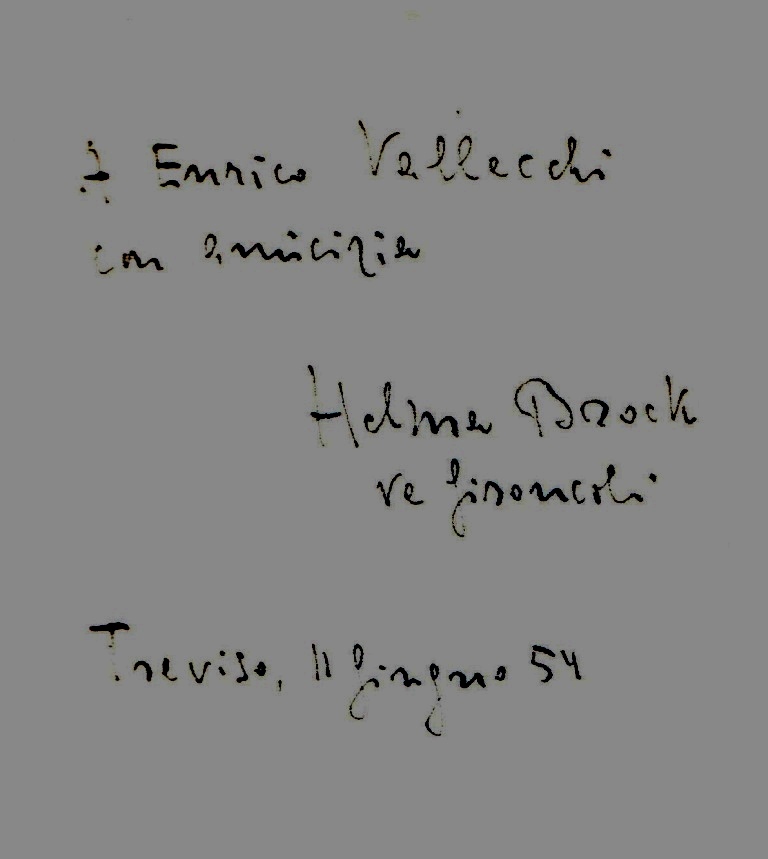 A Enrico Vallecchi
con amicizia
Helma Brock
ve Gironcoli
Treviso, 11 Giugno 54